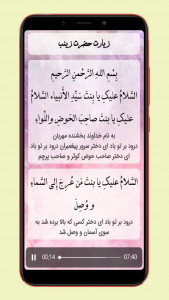 زیارت حضرت زینب
بِسْمِ اللهِ الرَّحْمنِ الرَّحیمِ
السَّلامُ عَلَیکِ یا بِنتَ سَیِّدِ الأَنبِیاء السَّلامُ
عَلَیکِ یا بِنتَ صاحِبَ الحَوضِ وَاللِّواءِ
به نام خداوند بخشنده مهربان
درود بر تو باد ای دختر سرور پیغمبران درود بر تو باد
ای دختر صاحب حوض کوثر و صاحب پرچم
السَّلامُ عَلَیکِ یا بِنتَ مَن عُرِجَ اِلی السَّماءِ
وَ وُصِلَ
درود بر تو باد ای دختر کسی که بالا برده شد به
سوی آسمان و وصل شد
00:14 07:40